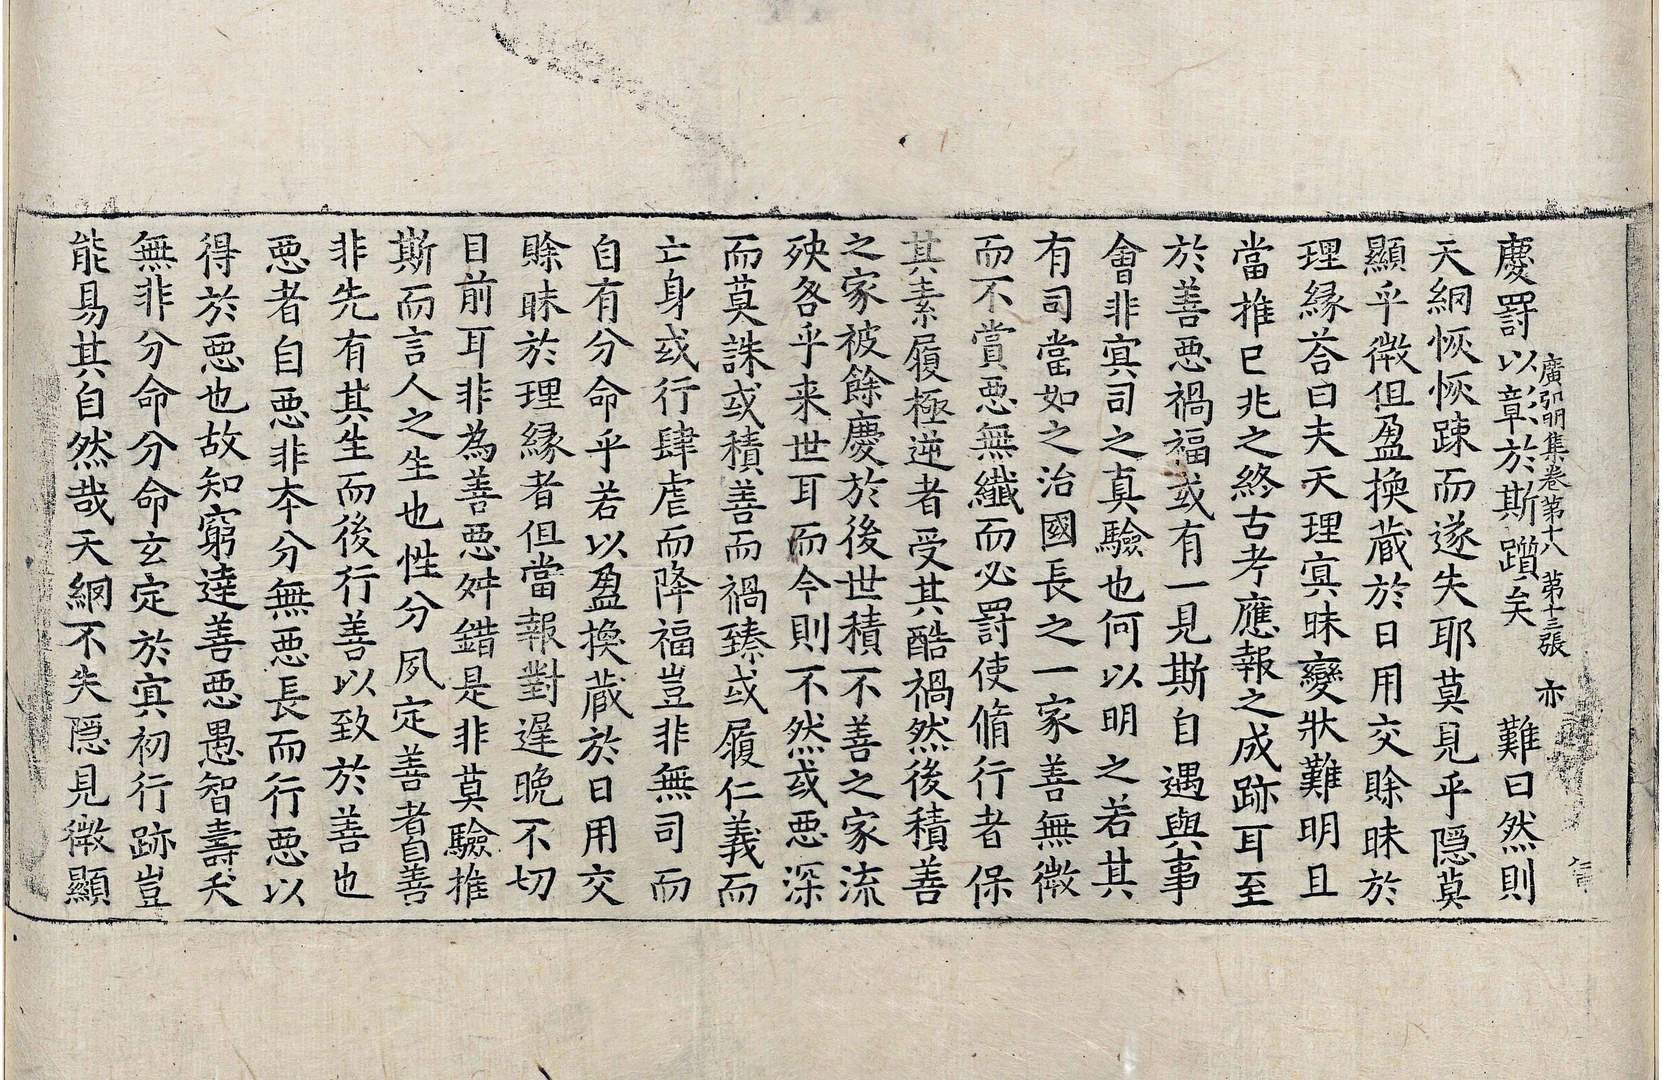 慶罸以彰於斯躓矣　　難曰然則
廣弘明集卷第十八　第十三張　亦
天網恢恢踈而遂失耶莫見乎隠莫
顯乎微但盈換蔵於日用交賒昧於
理縁荅曰夫天理㝠昧變狀難明且
當推已兆之終古考應報之成跡耳至
於善惡禍福或有一見斯自遇與事
會非㝠司之真驗也何以明之若其
有司當如之治國長之一家善無微
而不賞惡無纖而必罸使脩行者保
其素履極逆者受其酷禍然後積善
之家被餘慶於後世積不善之家流
殃各乎来世耳而今則不然或惡深
而莫誅或積善而禍臻或履仁義而
亡身或行肆虐而降福豈非無司而
自有分命乎若以盈換蔵於日用交
賒昧於理縁者但當報對遅晚不切
目前耳非為善惡舛錯是非莫驗推
斯而言人之生也性分夙定善者自善
非先有其生而後行善以致於善也
惡者自惡非本分無惡長而行惡以
得於惡也故知窮達善惡愚智壽夭
無非分命分命玄定於㝠初行跡豈
能易其自然哉天網不失隠見微顯